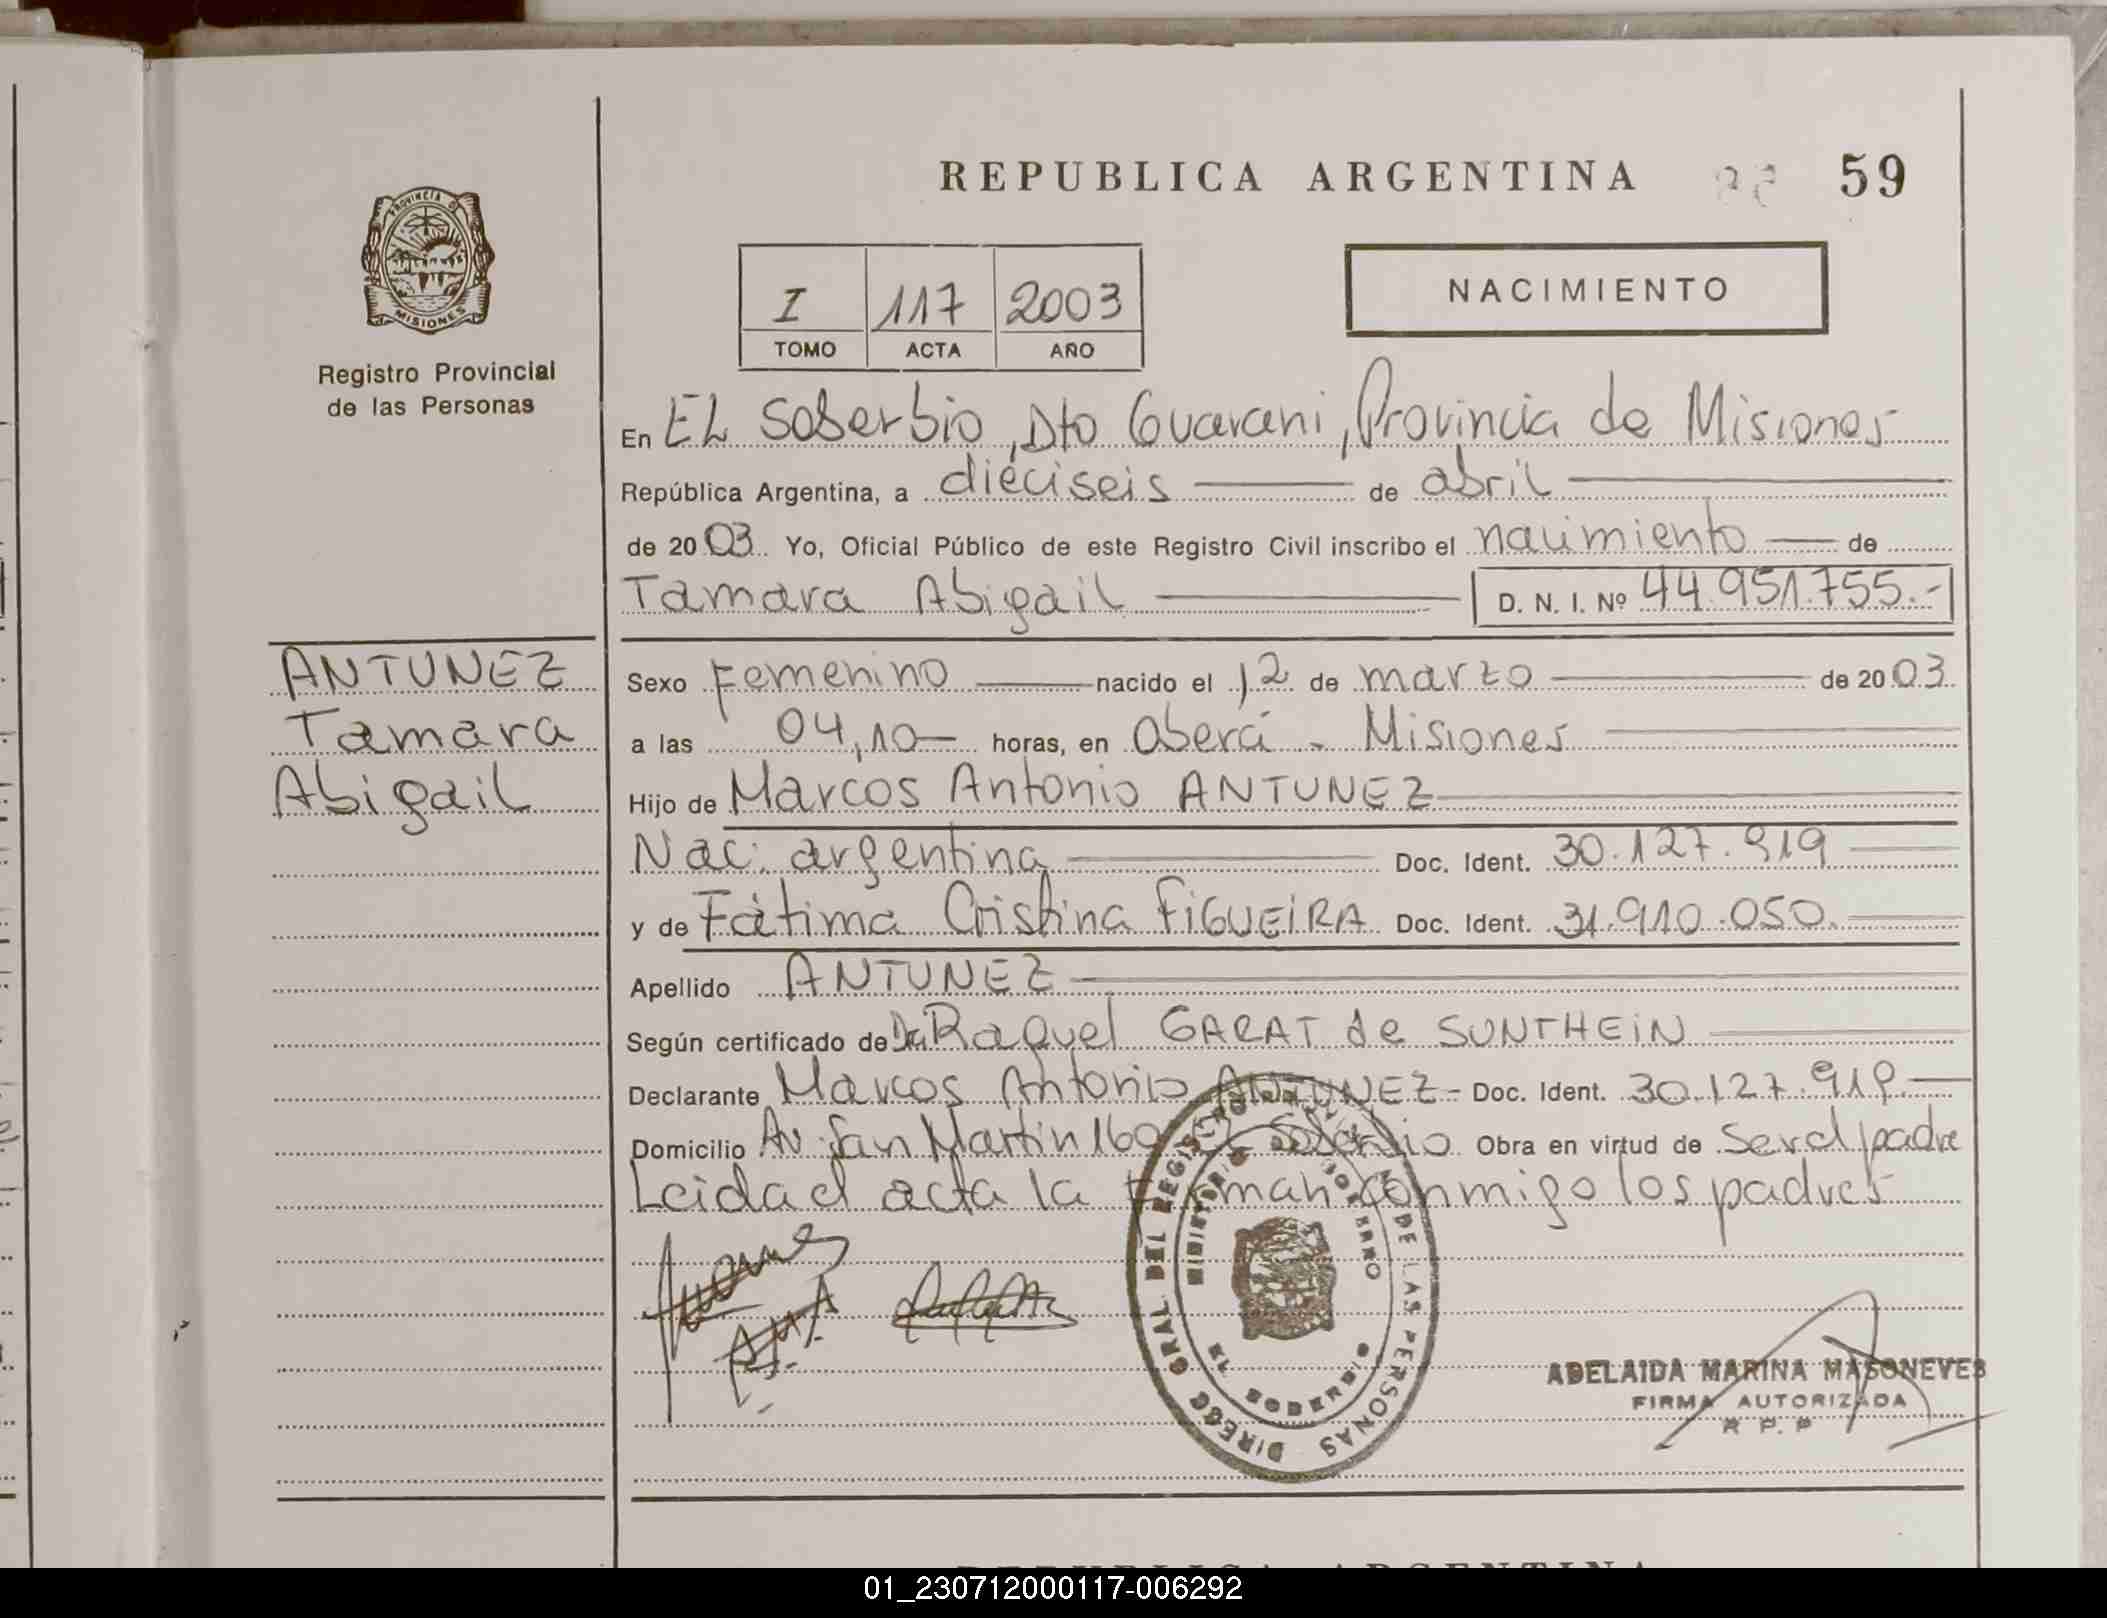 REPUBLICA ARGENTINA 59
PROVINCIA DE
MISIONES
Registro Provincial
de las Personas
I 117 2003
TOMO ACTA AÑO
NACIMIENTO
En EL Soberbio, Dto Guarani, Provincia de Misiones
República Argentina, a dieciseis de abril
de 2003. Yo, Oficial Público de este Registro Civil inscribo el nacimiento de
Tamara Abigail D. N. I. Nº 44.951.755.-
ANTUNEZ
Tamara
Abigail
Sexo Femenino nacido el 12 de marzo de 2003
a las 04,10 horas, en Oberá - Misiones
Hijo de Marcos Antonio ANTUNEZ
Nac. argentina Doc. Ident. 30.127.919
y de Fátima Cristina FIGUEIRA Doc. Ident. 31.910.050.
Apellido ANTUNEZ
Según certificado de Dra Raquel GARAT de SUNTHEIN
Declarante Marcos Antonio ANTUNEZ - Doc. Ident. 30.127.919
Domicilio Av. San Martin 160 Soberbio Obra en virtud de ser el padre
Leida el acta la Firman conmigo los padres
DIRECC GRAL DEL REGISTRO DE LAS PERSONAS
MINISTERIO GOBIERNO
EL SOBERBIO
ADELAIDA MARINA MASONEVES
FIRMA AUTORIZADA
R P. P
01_230712000117-006292